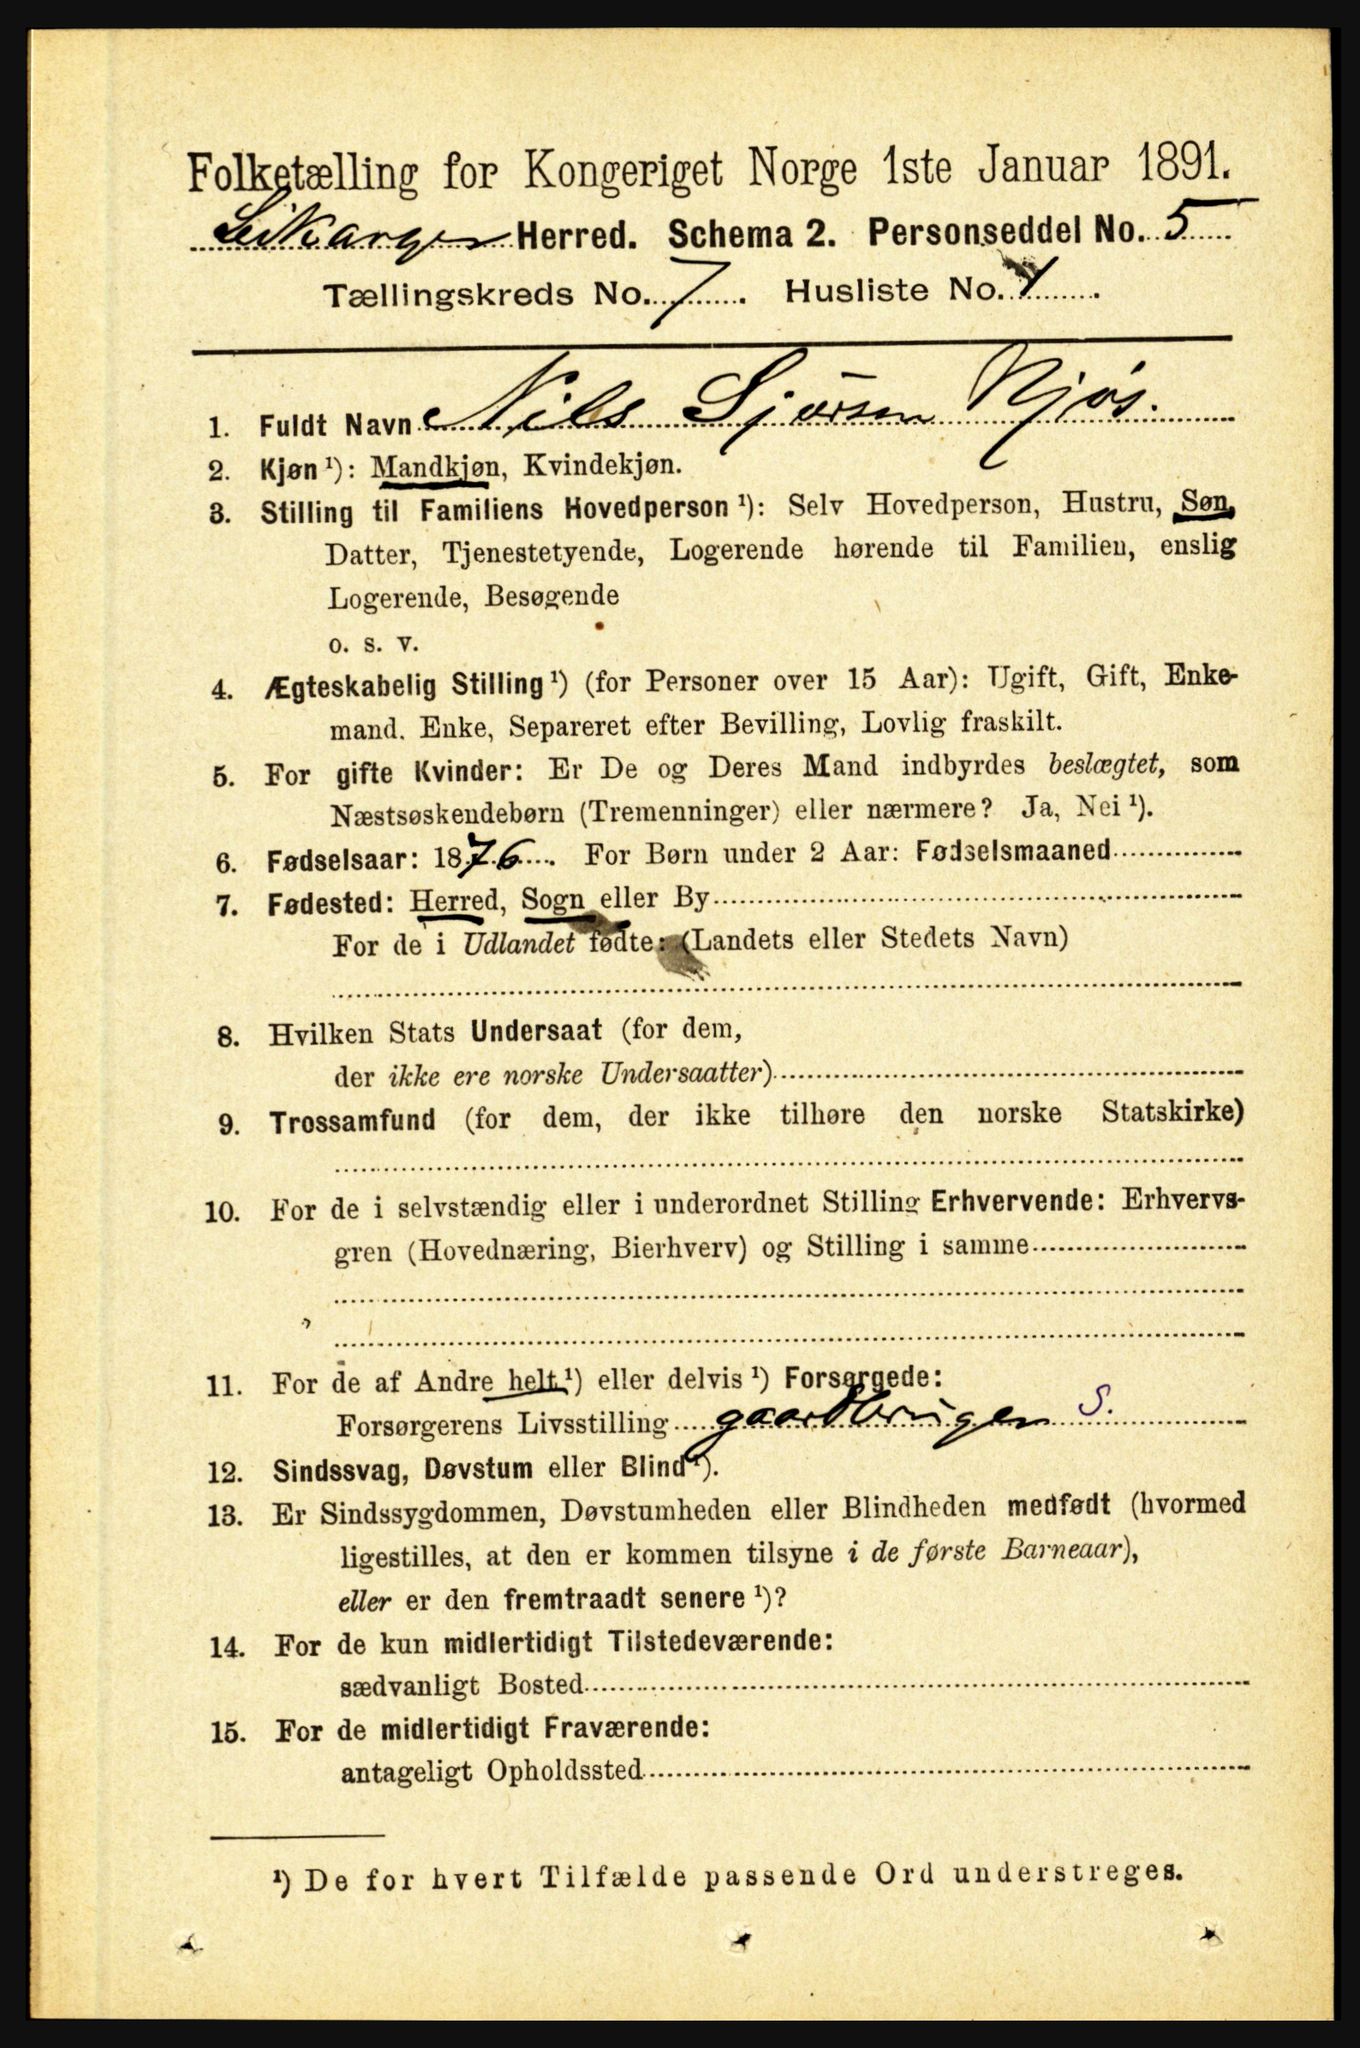 Folketælling for Kongeriget Norge 1ste Januar 1891.
Leikanger Herred. Schema 2. Personseddel No. 5
Tællingskreds No. 7. Husliste No. 1.
1. Fuldt Navn Nils Sjursen Njøs.
2. Kjøn ¹): Mandkjøn, Kvindekjøn.
3. Stilling til Familiens Hovedperson ¹): Selv Hovedperson, Hustru, Søn,
Datter, Tjenestetyende, Logerende hørende til Familien, enslig
Logerende, Besøgende
o. s. v.
4. Ægteskabelig Stilling ¹) (for Personer over 15 Aar): Ugift, Gift, Enke-
mand. Enke, Separeret efter Bevilling, Lovlig fraskilt.
5. For gifte Kvinder: Er De og Deres Mand indbyrdes beslægtet, som
Næstsøskendebørn (Tremenninger) eller nærmere? Ja, Nei ¹).
6. Fødselsaar: 1876. For Børn under 2 Aar: Fødselsmaaned
7. Fødested: Herred, Sogn eller By
For de i Udlandet fødte: (Landets eller Stedets Navn)
8. Hvilken Stats Undersaat (for dem,
der ikke ere norske Undersaatter)
9. Trossamfund (for dem, der ikke tilhøre den norske Statskirke)
10. For de i selvstændig eller i underordnet Stilling Erhvervende: Erhvervs-
gren (Hovednæring, Bierhverv) og Stilling i samme
11. For de af Andre helt ¹) eller delvis ¹) Forsørgede:
Forsørgerens Livsstilling gaardbruger S.
12. Sindssvag, Døvstum eller Blind ¹).
13. Er Sindssygdommen, Døvstumheden eller Blindheden medfødt (hvormed
ligestilles, at den er kommen tilsyne i de første Barneaar),
eller er den fremtraadt senere ¹)?
14. For de kun midlertidigt Tilstedeværende:
sædvanligt Bosted
15. For de midlertidigt Fraværende:
antageligt Opholdssted
¹) De for hvert Tilfælde passende Ord understreges.